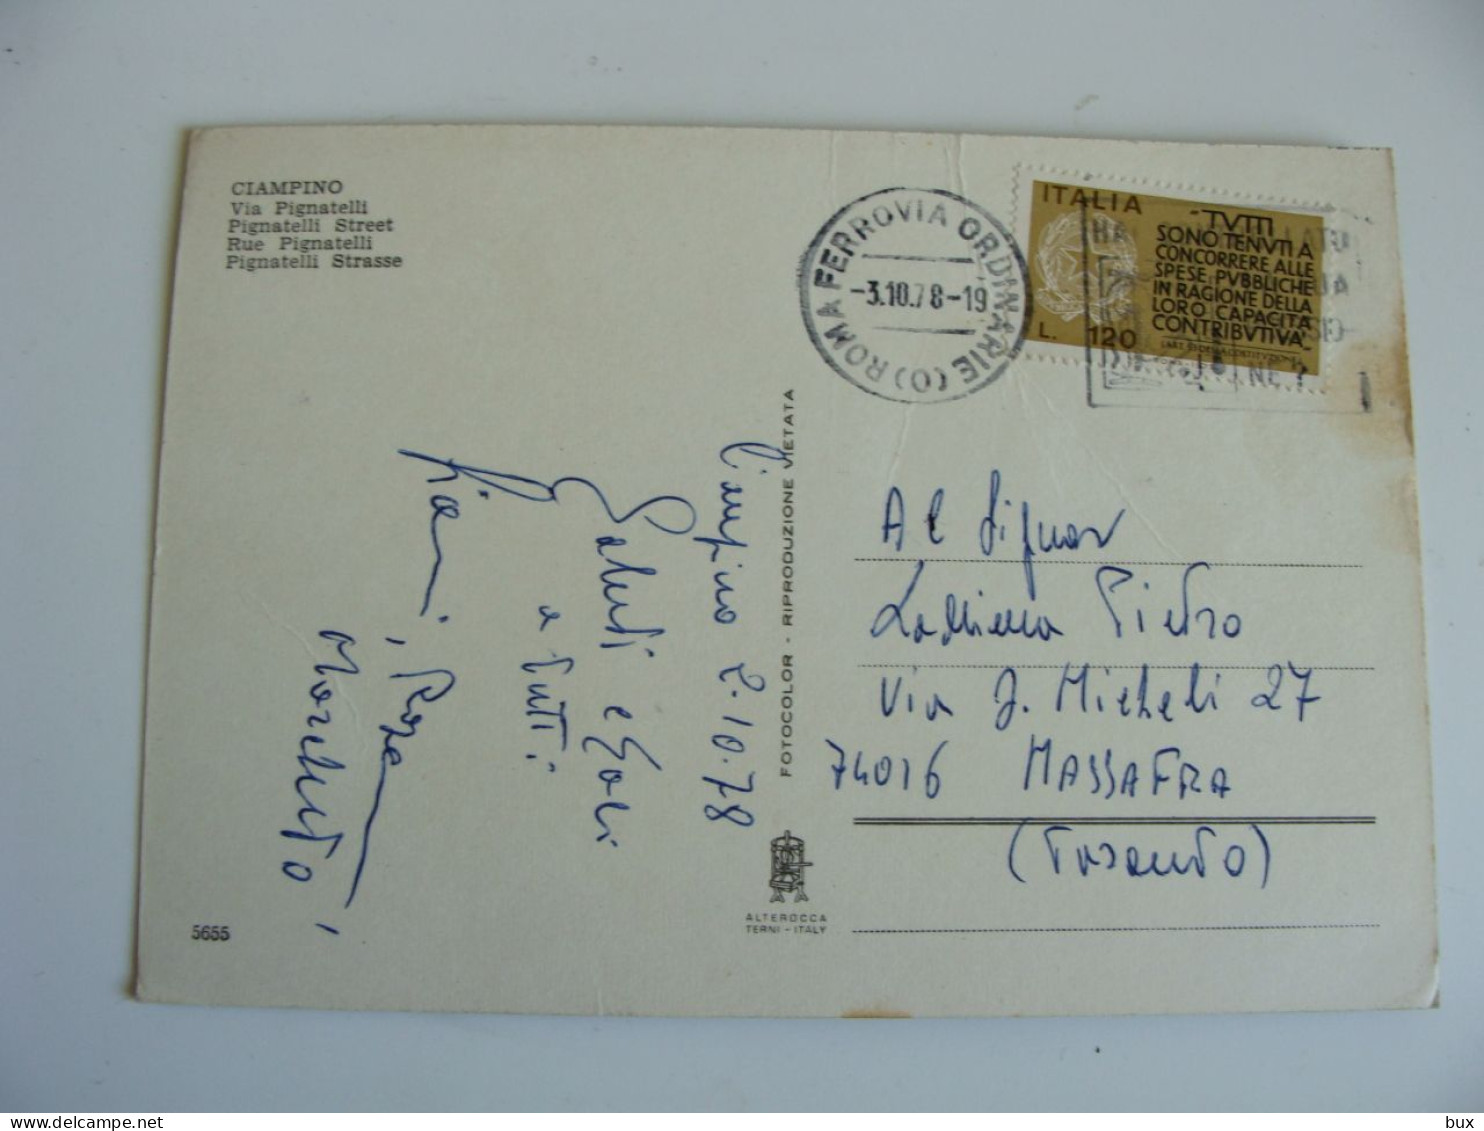 CIAMPINO
Via Pignatelli
Pignatelli Street
Rue Pignatelli
Pignatelli Strasse
ROMA FERROVIA ORDINARIE (O)
-3.10.78-19
ITALIA
L. 120
-TVTTI
SONO TENVTI A
CONCORRERE ALLE
SPESE PVBBLICHE
IN RAGIONE DELLA
LORO CAPACITA'
CONTRIBVTIVA-
Ciampino 2.10.78
Saluti e baci
a tutti
Rosa
FOTOCOLOR - RIPRODUZIONE VIETATA
Al Signor
Pietro
Via G. Micheli 27
74016 MASSAFRA
(Taranto)
ALTEROCCA
TERNI - ITALY
5655
delcampe.net
bux